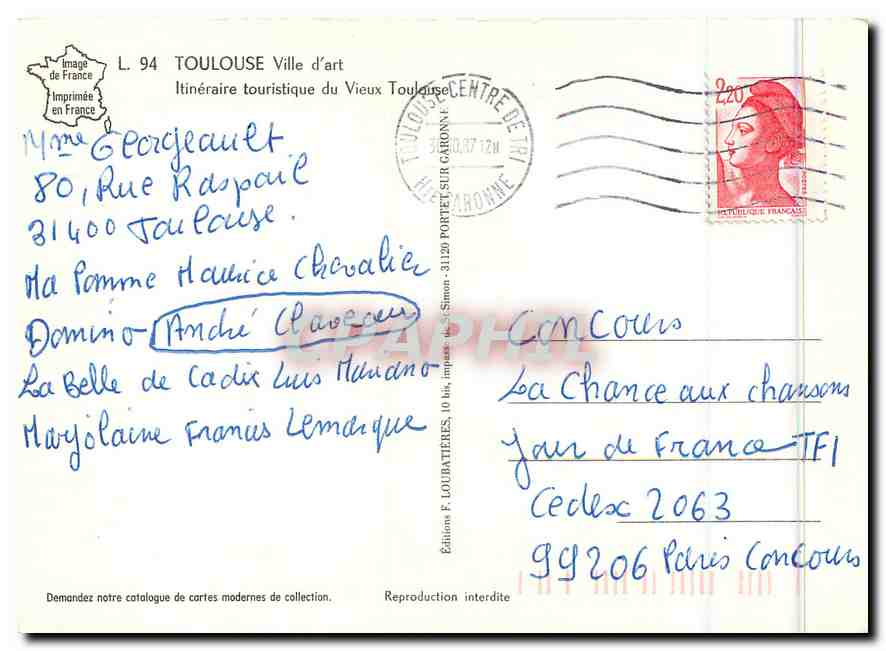 Image
de France
Imprimée
en France
L. 94 TOULOUSE Ville d'art
Itinéraire touristique du Vieux Toulouse
Mme Georgeault
80, Rue Raspail
31400 Toulouse.
Ma Pomme Maurice Chevalier
Domino André Claveau
La Belle de Cadix Luis Mariano
Marjolaine Francis Lemarque
Demandez notre catalogue de cartes modernes de collection.
Reproduction interdite
Éditions F. LOUBATIÈRES, 10 bis, impasse de St Simon - 31120 PORTET SUR GARONNE
TOULOUSE CENTRE DE TRI
10.87 12H
HTE GARONNE
2,20
REPUBLIQUE FRANÇAISE
CPAPHIL
Concours
La Chance aux chansons
Jour de France TF1
Cedex 2063
99206 Paris Concours